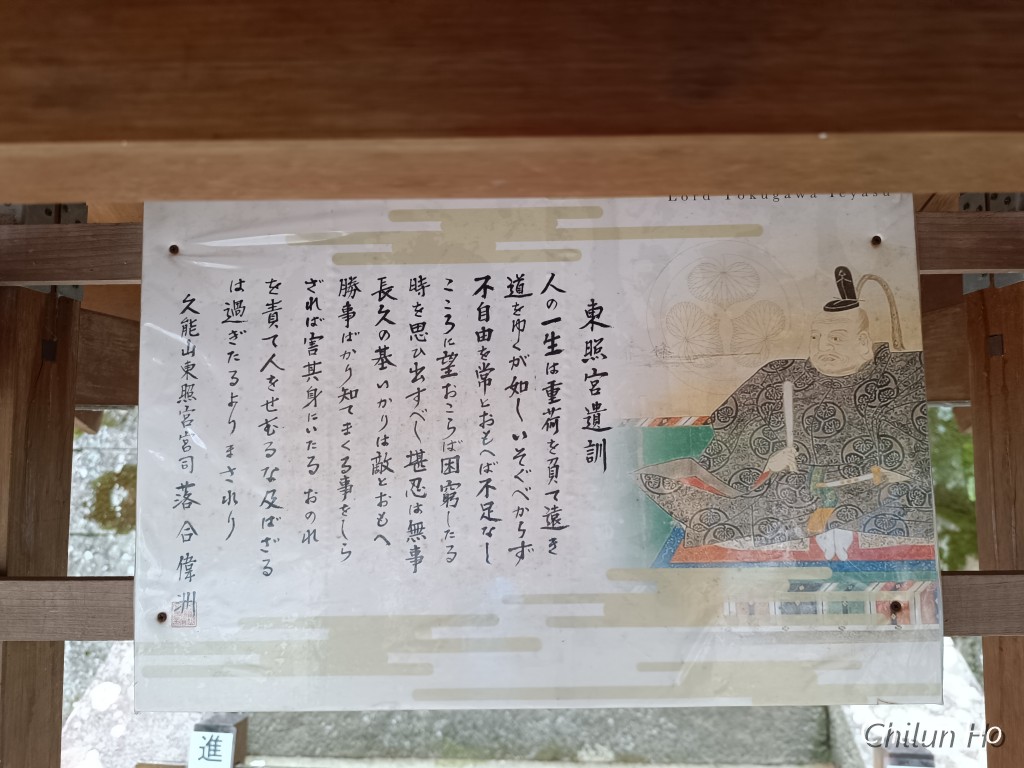 Lord Tokugawa Ieyasu
東照宮遺訓
人の一生は重荷を負て遠き
道をゆくが如しいそぐべからず
不自由を常とおもへば不足なし
こころに望おこらば困窮したる
時を思ひ出すべし堪忍は無事
長久の基いかりは敵とおもへ
勝事ばかり知てまくる事をしら
ざれば害其身にいたる おのれ
を責て人をせむるな及ばざる
は過ぎたるよりまされり
久能山東照宮宮司 落合偉洲
進
Chilun Ho